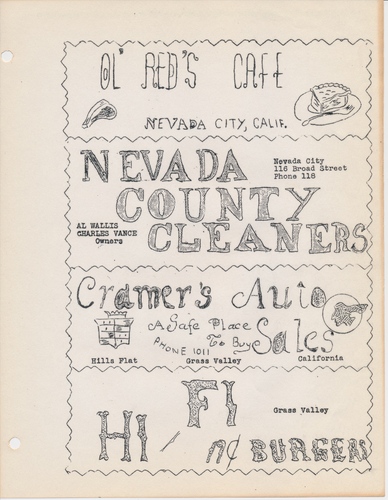 OL' RED'S CAFE
NEVADA CITY, CALIF.
NEVADA
COUNTY
CLEANERS
Nevada City
116 Broad Street
Phone 118
AL WALLIS
CHARLES VANCE
Owners
Cramer's Auto
Sales
A Safe Place
To Buy
PHONE 1011
Hills Flat
Grass Valley
California
HI - FI
Grass Valley
BURGER